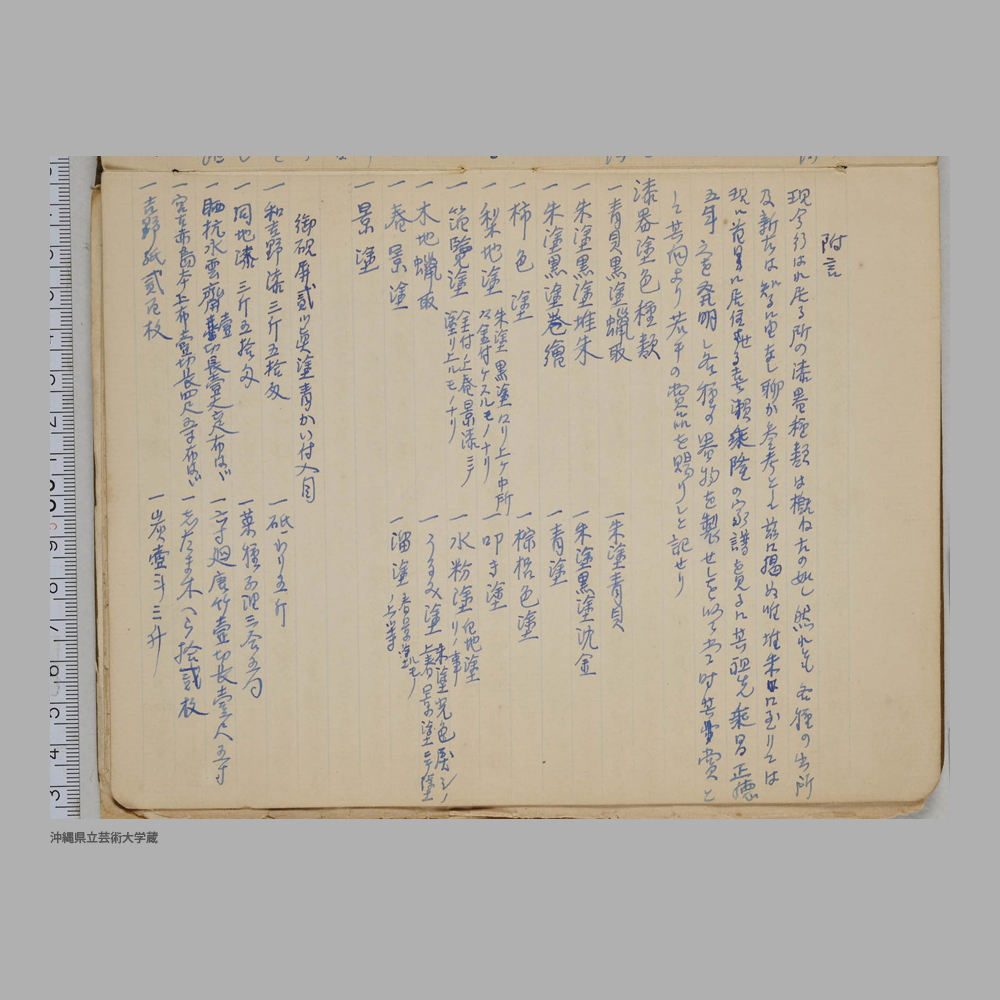 附言
現今行はれ居る所の漆器種類は概ね左の如し然れども各種の出所
及新古は知るに由なし聊か参考として茲に掲ぬ唯堆朱に至りては
現に首里に居住せる喜瀬乗隆の家譜を見るに其祖先乗昌正徳
五年之を発明し各種の器物を製せしを以て当時其賞と
して其向より若干の賞品を賜りしと記せり
漆器塗色種類
一青貝黒塗蝋取
一朱塗黒塗堆朱
一朱塗黒塗巻繪
一柿色塗
一梨地塗 朱塗黒塗ロリ上ケ中所
金付ケスルモノナリ
一筑覧塗 金付上春景漆ニテ
塗リ上ルモノナリ
一木地蝋取
一春景塗
一景塗
一朱塗青貝
一朱塗黒塗沈金
一青塗
一棕梠色塗
一叩き塗
一水粉塗 白地塗
リノ事
一うるみ塗 朱塗光色ニシテ
上春景塗ニテ塗
一溜塗 春景塗ルモノ
ノ上等
御硯屏貳ツ真塗青かい付入目
一和吉野漆三斤五拾匁
一同地漆三斤五拾匁
一晒杭水雲齋壹切長壹丈疋布はゝ
一宮古赤島本上布壹切長四尺五寸布はゝ
一吉野紙貳百枚
一砥こわり五斤
一薬種子油三合五勺
一二寸廻唐竹壹切長壹尺五寸
一志たま木へら拾貳枚
一炭壹斗三升
沖縄県立芸術大学蔵